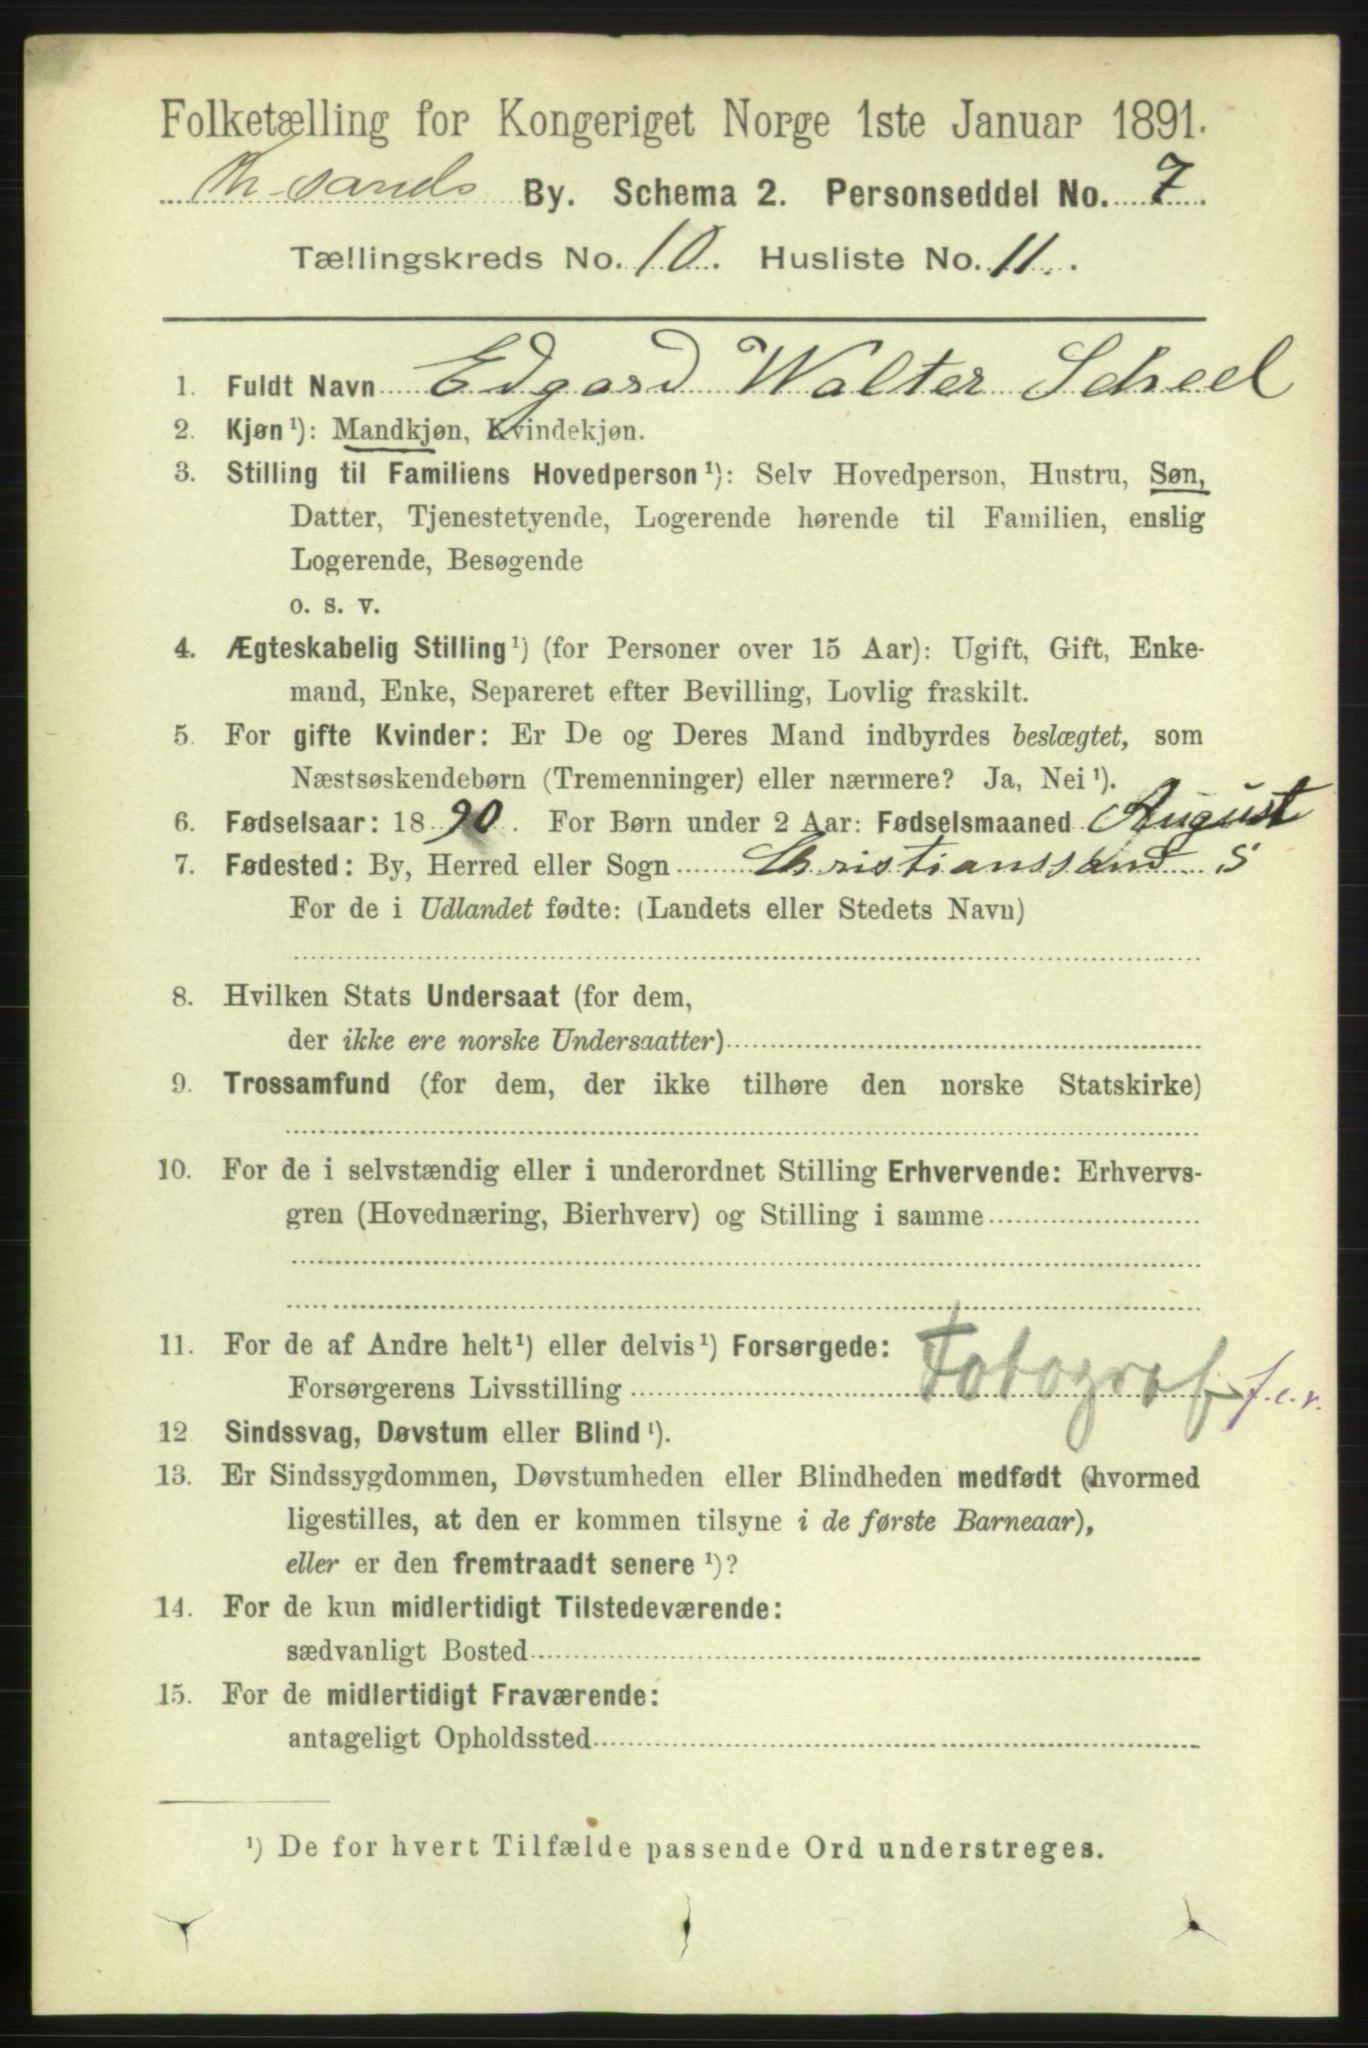 Folketælling for Kongeriget Norge 1ste Januar 1891.
Kr.sands By. Schema 2. Personseddel No. 7.
Tællingskreds No. 10. Husliste No. 11.
1. Fuldt Navn Edgard Walter Scheel
2. Kjøn ¹): Mandkjøn, Kvindekjøn.
3. Stilling til Familiens Hovedperson ¹): Selv Hovedperson, Hustru, Søn,
Datter, Tjenestetyende, Logerende hørende til Familien, enslig
Logerende, Besøgende
o. s. v.
4. Ægteskabelig Stilling ¹) (for Personer over 15 Aar): Ugift, Gift, Enke-
mand, Enke, Separeret efter Bevilling, Lovlig fraskilt.
5. For gifte Kvinder: Er De og Deres Mand indbyrdes beslægtet, som
Næstsøskendebørn (Tremenninger) eller nærmere? Ja, Nei ¹).
6. Fødselsaar: 1890. For Børn under 2 Aar: Fødselsmaaned August
7. Fødested: By, Herred eller Sogn Christianssand S
For de i Udlandet fødte: (Landets eller Stedets Navn)
8. Hvilken Stats Undersaat (for dem,
der ikke ere norske Undersaatter)
9. Trossamfund (for dem, der ikke tilhøre den norske Statskirke)
10. For de i selvstændig eller i underordnet Stilling Erhvervende: Erhvervs-
gren (Hovednæring, Bierhverv) og Stilling i samme
11. For de af Andre helt ¹) eller delvis ¹) Forsørgede:
Forsørgerens Livsstilling Fotograf f.e.r.
12. Sindssvag, Døvstum eller Blind ¹).
13. Er Sindssygdommen, Døvstumheden eller Blindheden medfødt (hvormed
ligestilles, at den er kommen tilsyne i de første Barneaar),
eller er den fremtraadt senere ¹)?
14. For de kun midlertidigt Tilstedeværende:
sædvanligt Bosted
15. For de midlertidigt Fraværende:
antageligt Opholdssted
¹) De for hvert Tilfælde passende Ord understreges.